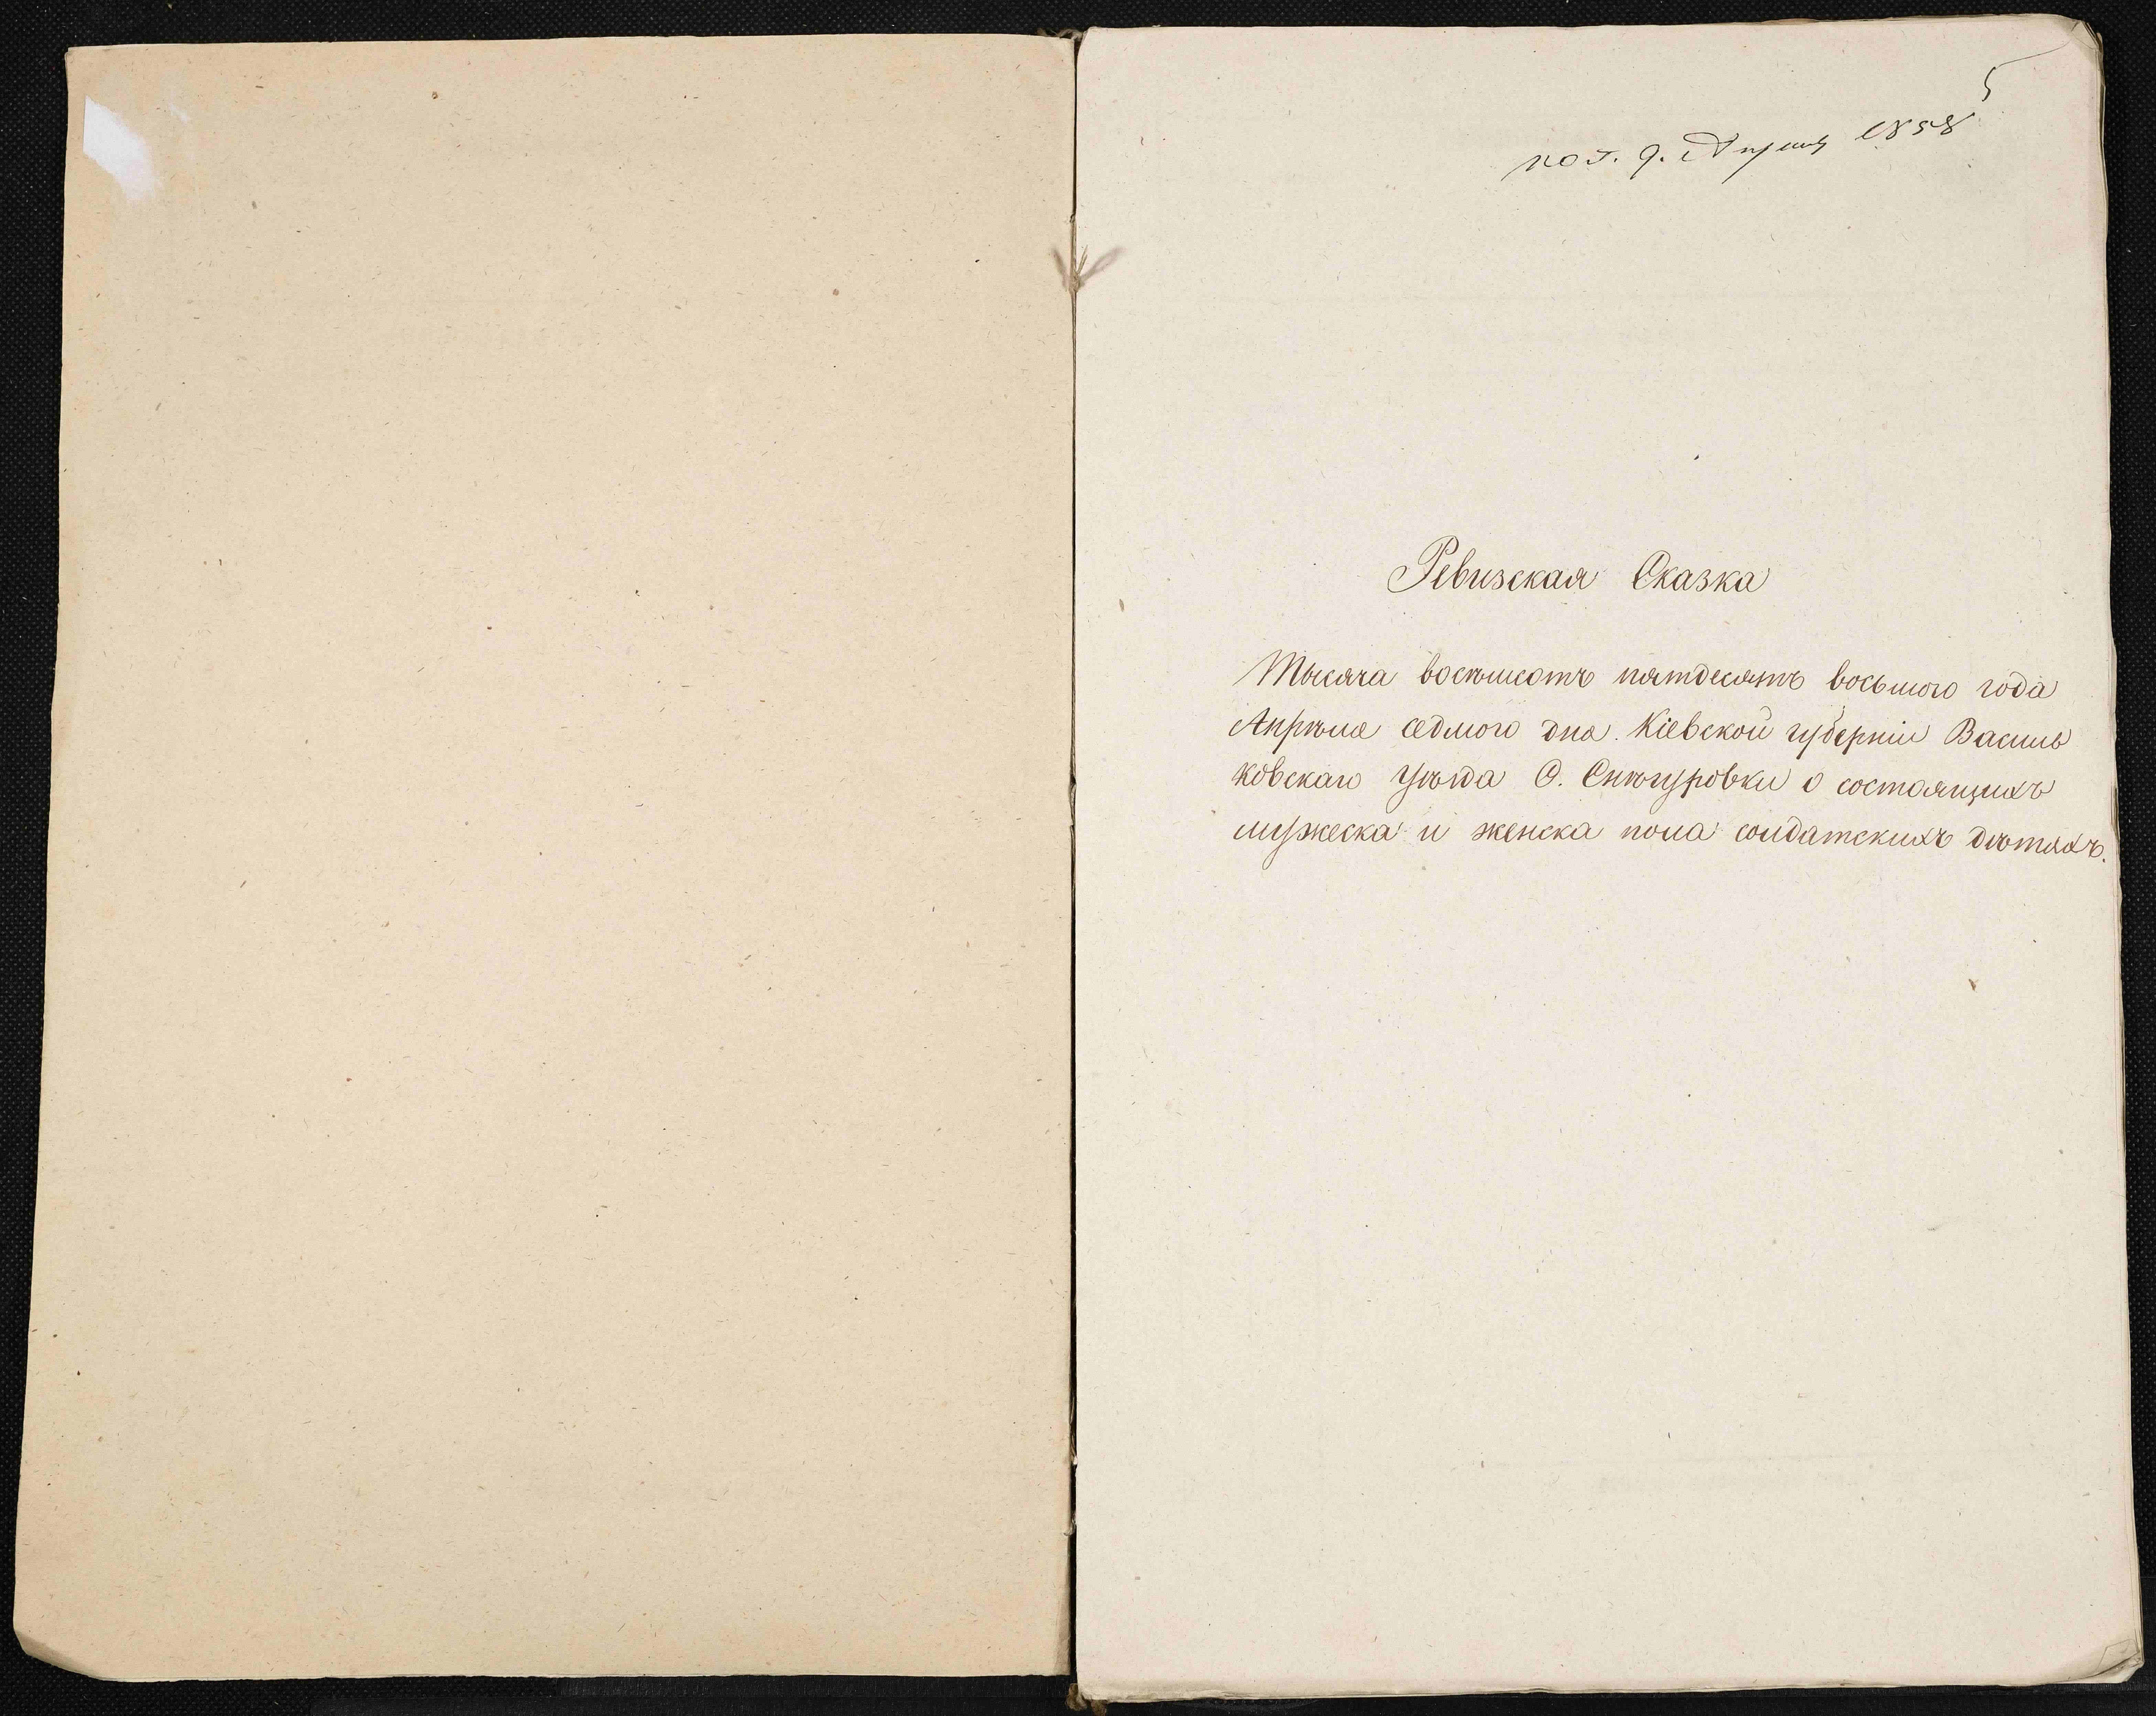 5
пол. 9. Апреля 1858
Ревизская Сказка
Тысяча восѣмсотъ пятдесятъ восьмого года
Апрѣля седмого дня. Кіевской губерніи Василь
ковскаго Уѣзда С. Снѣгуровки о состоящихъ
мужеска и женска пола солдатскихъ дѣтяхъ.